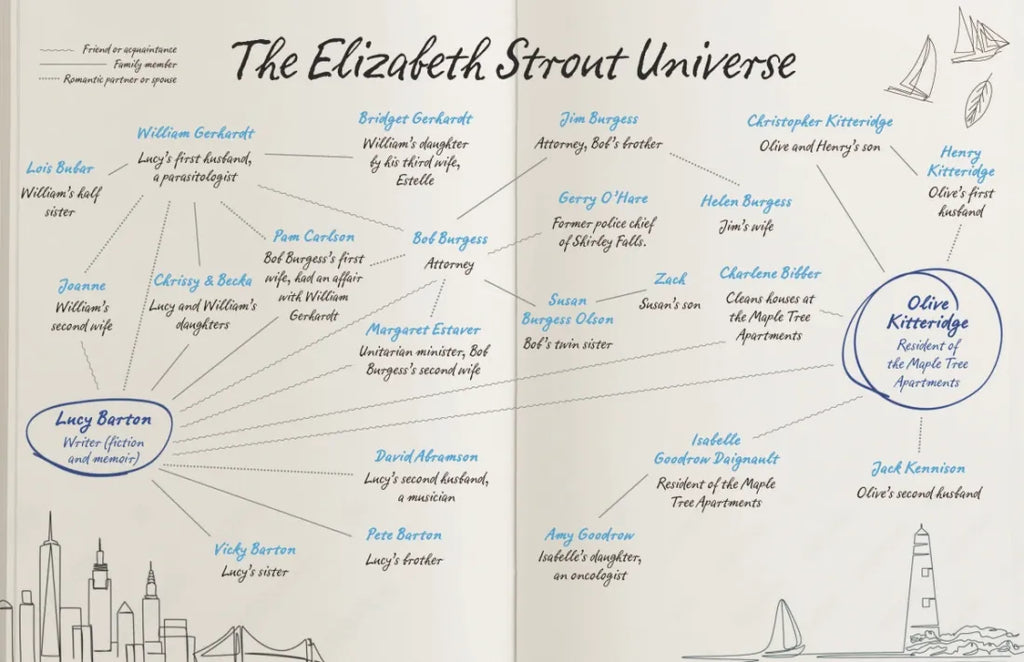 The Elizabeth Strout Universe
Friend or acquaintance
Family member
Romantic partner or spouse
William Gerhardt
Lucy's first husband,
a parasitologist
Bridget Gerhardt
William's daughter
by his third wife,
Estelle
Jim Burgess
Attorney, Bob's brother
Christopher Kitteridge
Olive and Henry's son
Lois Bubar
William's half
sister
Henry
Kitteridge
Olive's first
husband
Gerry O'Hare
Former police chief
of Shirley Falls.
Helen Burgess
Jim's wife
Pam Carlson
Bob Burgess's first
wife, had an affair
with William
Gerhardt
Bob Burgess
Attorney
Joanne
William's
second wife
Chrissy & Becka
Lucy and William's
daughters
Zach
Susan's son
Charlene Bibber
Cleans houses at
the Maple Tree
Apartments
Susan
Burgess Olson
Bob's twin sister
Olive
Kitteridge
Resident of
the Maple Tree
Apartments
Margaret Estaver
Unitarian minister, Bob
Burgess's second wife
Lucy Barton
Writer (fiction
and memoir)
David Abramson
Lucy's second husband,
a musician
Isabelle
Goodrow Daignault
Resident of the Maple
Tree Apartments
Jack Kennison
Olive's second husband
Vicky Barton
Lucy's sister
Pete Barton
Lucy's brother
Amy Goodrow
Isabelle's daughter,
an oncologist